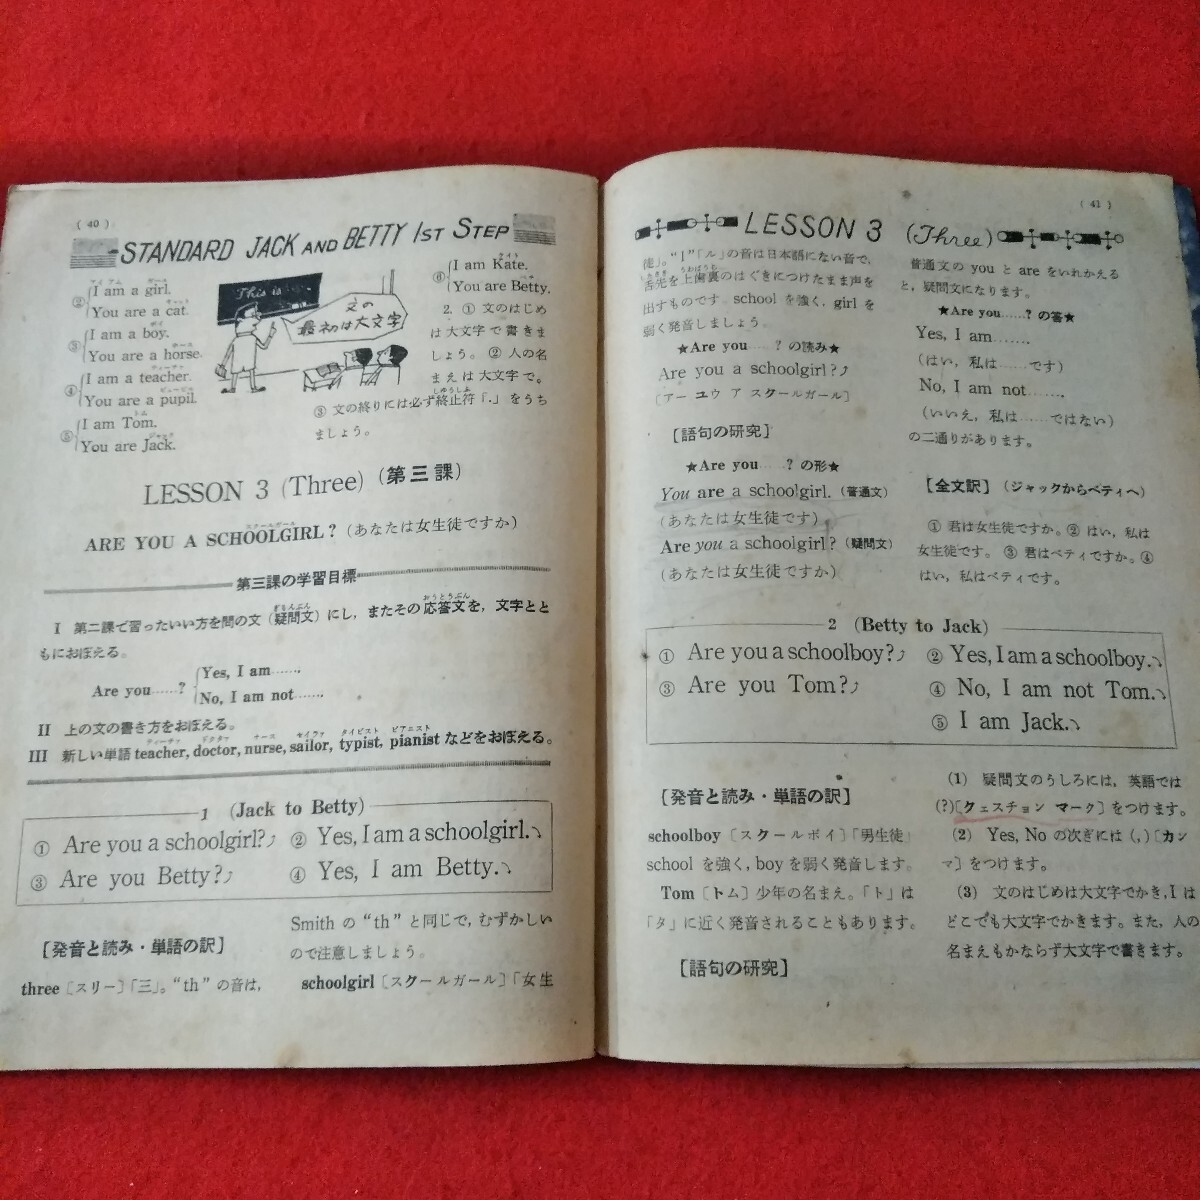 ( 40 )
STANDARD JACK AND BETTY 1ST STEP
② I am a girl.
You are a cat.
③ I am a boy.
You are a horse.
④ I am a teacher.
You are a pupil.
⑤ I am Tom.
You are Jack.
This is
文の
最初は大文字
⑥ I am Kate.
You are Betty.
2. ① 文のはじめ
は大文字で書きま
しょう。② 人の名
まえは大文字で。
③ 文の終りには必ず終止符「.」をうち
ましょう。
LESSON 3 (Three) (第三課)
ARE YOU A SCHOOLGIRL? (あなたは女生徒ですか)
第三課の学習目標
I 第二課で習ったいい方を問の文(疑問文)にし,またその応答文を,文字とと
もにおぼえる。
Are you……? Yes, I am…….
No, I am not…….
II 上の文の書き方をおぼえる。
III 新しい単語 teacher, doctor, nurse, sailor, typist, pianist などをおぼえる。
1 (Jack to Betty)
① Are you a schoolgirl? ② Yes, I am a schoolgirl.
③ Are you Betty? ④ Yes, I am Betty.
【発音と読み・単語の訳】
three〔スリー〕「三」。“th” の音は,
Smith の “th” と同じで,むずかしい
ので注意しましょう。
schoolgirl〔スクールガール〕「女生
( 41 )
LESSON 3 (Three)
徒」。“l”「ル」の音は日本語にない音で,
舌先を上歯裏のはぐきにつけたまま声を
出すものです。school を強く, girl を
弱く発音しましょう。
★Are you……? の読み★
Are you a schoolgirl?
〔アー ユウ ア スクールガール〕
【語句の研究】
★Are you……? の形★
You are a schoolgirl. (普通文)
(あなたは女生徒です)
Are you a schoolgirl? (疑問文)
(あなたは女生徒ですか)
普通文の you と are をいれかえる
と,疑問文になります。
★Are you……? の答★
Yes, I am…….
(はい,私は……です)
No, I am not…….
(いいえ,私は……ではない)
の二通りがあります。
【全文訳】(ジャックからベティへ)
① 君は女生徒ですか。② はい,私は
女生徒です。③ 君はベティですか。④
はい,私はベティです。
2 (Betty to Jack)
① Are you a schoolboy? ② Yes, I am a schoolboy.
③ Are you Tom? ④ No, I am not Tom.
⑤ I am Jack.
【発音と読み・単語の訳】
schoolboy〔スクールボイ〕「男生徒」
school を強く, boy を弱く発音します。
Tom〔トム〕少年の名まえ。「ト」は
「タ」に近く発音されることもあります。
【語句の研究】
(1) 疑問文のうしろには,英語では
(?)〔クェスチョン マーク〕をつけます。
(2) Yes, No の次ぎには (,)〔カン
マ〕をつけます。
(3) 文のはじめは大文字でかき, I は
どこでも大文字でかきます。また,人の
名まえもかならず大文字で書きます。